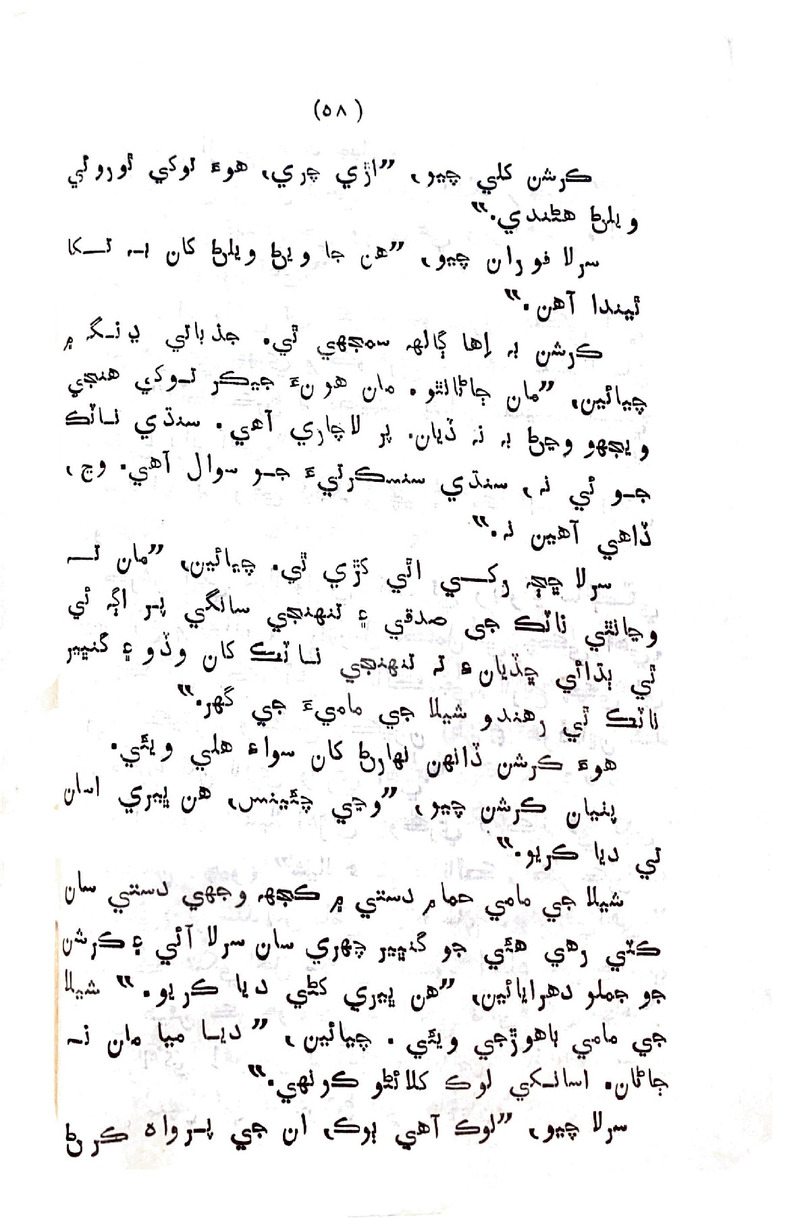 (٥٨)
ڪرشن کلي چيو، ”اڙي چري، هوءَ توکي ٿوروئي
ويلڻ هڻندي.“
سرلا فوران چيو، ”هن جا ويڻ ويلڻ کان بہ تکا
ٿيندا آهن.“
ڪرشن بہ اِها ڳالهہ سمجهي ٿي. جذباتي ڍنگہ ۾
چيائين، ”مان ڄاڻانٿو. مان هونءَ جيڪر توکي هنجي
ويجهو وڃڻ بہ نہ ڏيان. پر لاچاري آهي. سنڌي ناٽڪ
جو ئي نہ، سنڌي سنسڪرتيءَ جو سوال آهي. وڃ،
ڏاهي آهين نہ.“
سرلا ڇڇہ رکي اٿي کڙي ٿي. چيائين، ”مان تہ
وڃانٿي ناٽڪ جي صدقي ۽ تنهنجي سانگي پر اڳہ ئي
ٿي ٻڌائي ڇڏيان ءِ تہ تنهنجي ناٽڪ کان وڏو ۽ گنڀير
ناٽڪ ٿي رهندو شيلا جي ماميءَ جي گهر.“
هوءَ ڪرشن ڏانهن نهارڻ کان سواءِ هلي ويئي.
پٺيان ڪرشن چيو، ”وڃي چئينس، هن ڀيري اسان
تي ديا ڪريو.“
شيلا جي مامي حمام دستي ۾ ڪجهہ وجهي دستي سان
ڪٽي رهي هئي جو گنڀير چهري سان سرلا آئي ۽ ڪرشن
جو جملو دهرايائين، ”هن ڀيري کڻي ديا ڪريو.“ شيلا
جي مامي ٻاهوڙجي ويئي. چيائين، ”ديا ميا مان نہ
ڄاڻان. اسانکي لوڪ کلائڻو ڪونهي.“
سرلا چيو، ”لوڪ آهي ٻوڪ، ان جي پرواه ڪرڻ